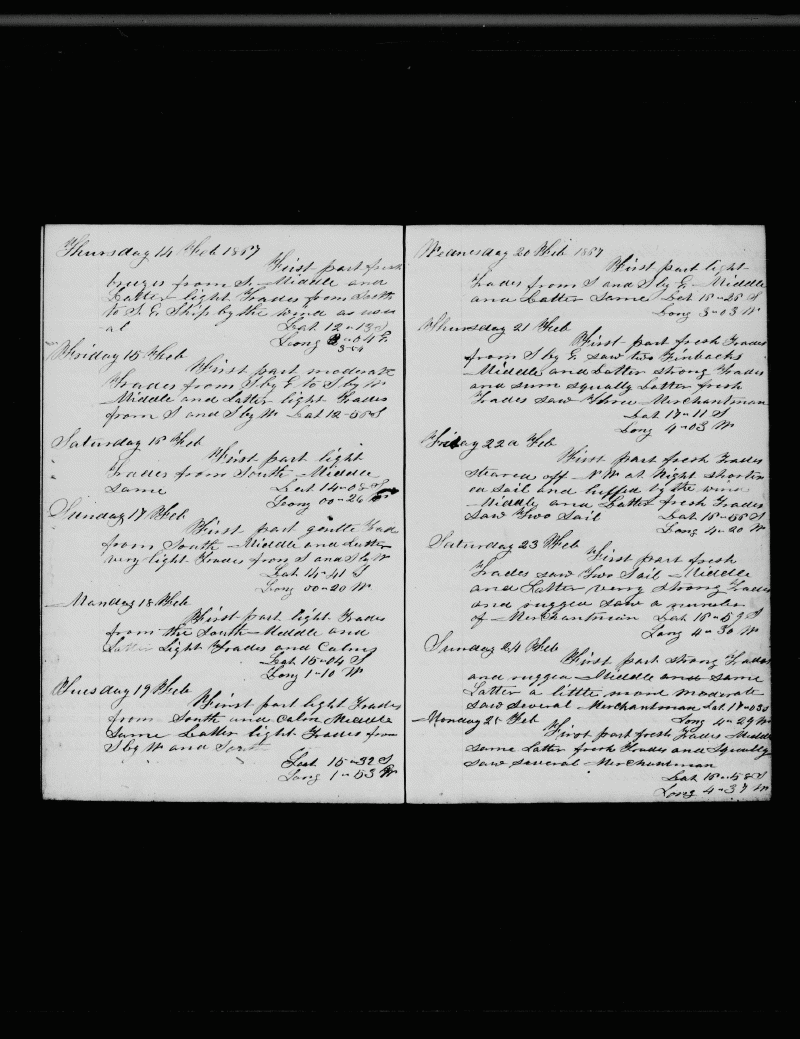 Thursday 14 Feb 1867
First part fresh
breezes from S. Middle and
Latter light Trades from South
to S. E. Ship by the wind as usu
al Lat 12"13 S
Long 3"04 E
3-54
Friday 15 Feb
First part moderate
Trades from S by E to S by W
Middle and Latter light Trades
from S and S by W Lat 12-56 S
Saturday 16 Feb
First part light
Trades from South Middle
Same Lat 14-08 S
Long 00-26 W
Sunday 17 Feb
First part gentle Trad
from South Middle and Latter
very light Trades from S and S by W
Lat 14-41 S
Long 00-20 W
Monday 18 Feb
First part light Trades
from the South Middle and
Latter Light Trades and Calms
Lat 15-04 S
Long 1-10 W
Tuesday 19 Feb
First part light Trades
from South and Calm Middle
Same Latter light Trades from
S by W and
Lat 15-32 S
Long 1-53 W
Wednesday 20 Feb 1867
First part light
Trades from S and S by E Middle
and Latter Same Lat 16-26 S
Long 3-03 W
Thursday 21 Feb
First part fresh Trades
from S by E saw two Finbacks
Middle and Latter strong Trades
and sum squally Latter fresh
Trades saw Three Merchantman
Lat 17-11 S
Long 4-03 W
Friday 22d Feb
First part fresh Trades
steared off N W at Night shortin
ed sail and luffed by the wind
Middle and Latter fresh Trades
saw Two Sail Lat 16-56 S
Long 4-20 W
Saturday 23 Feb
First part fresh
Trades saw Two Sail Middle
and Latter very strong Trades
and rugged saw a number
of Merchantmin Lat 16-59 S
Long 4-30 W
Sunday 24 Feb
First part strong Trades
and rugged Middle and same
Latter a little more moderate
saw several Merchantman Lat 17-03 S
Long 4-29 W
Monday 25 Feb
First part fresh Trades Middle
same Latter fresh Trades and Squally
saw several Merchantman
Lat 16-58 S
Long 4-37 W